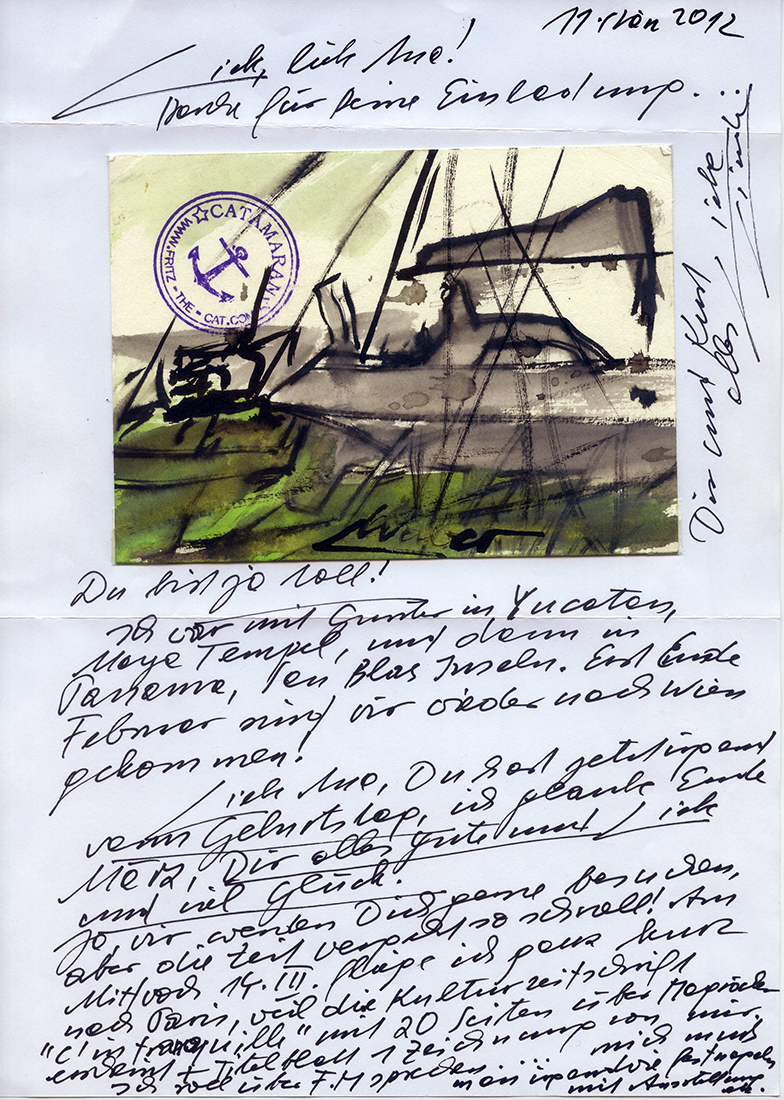 11. Män 2012
Liebe, liebe Ana!
Danke für Deine Einladung...
CATAMARAN
WWW.FRITZ-THE-CAT.COM
Dir und Kurt
alles Liebe
Du bist ja toll!
Ich war mit Gunter in Yucatan,
Maya Tempel, und dann in
Panama, San Blas Inseln. Erst Ende
Februar sind wir wieder nach Wien
gekommen!
Liebe Ana, Du hast jetzt irgend
wann Geburtstag, ich glaube Ende
März, Dir alles Gute und Liebe
und viel Glück.
Ja, wir werden Dich gerne besuchen,
aber die Zeit vergeht so schnell! Am
Mittwoch 14. III. fliege ich ganz kurz
nach Paris, weil die Kulturzeitschrift
"L'intranquille" mit 20 Seiten über
erscheint + Titelblatt 1 Zeichnung von mir.
Ich soll über F.M sprechen.... mich muss
man irgendwie festnageln
mit Ausstellung
etc.